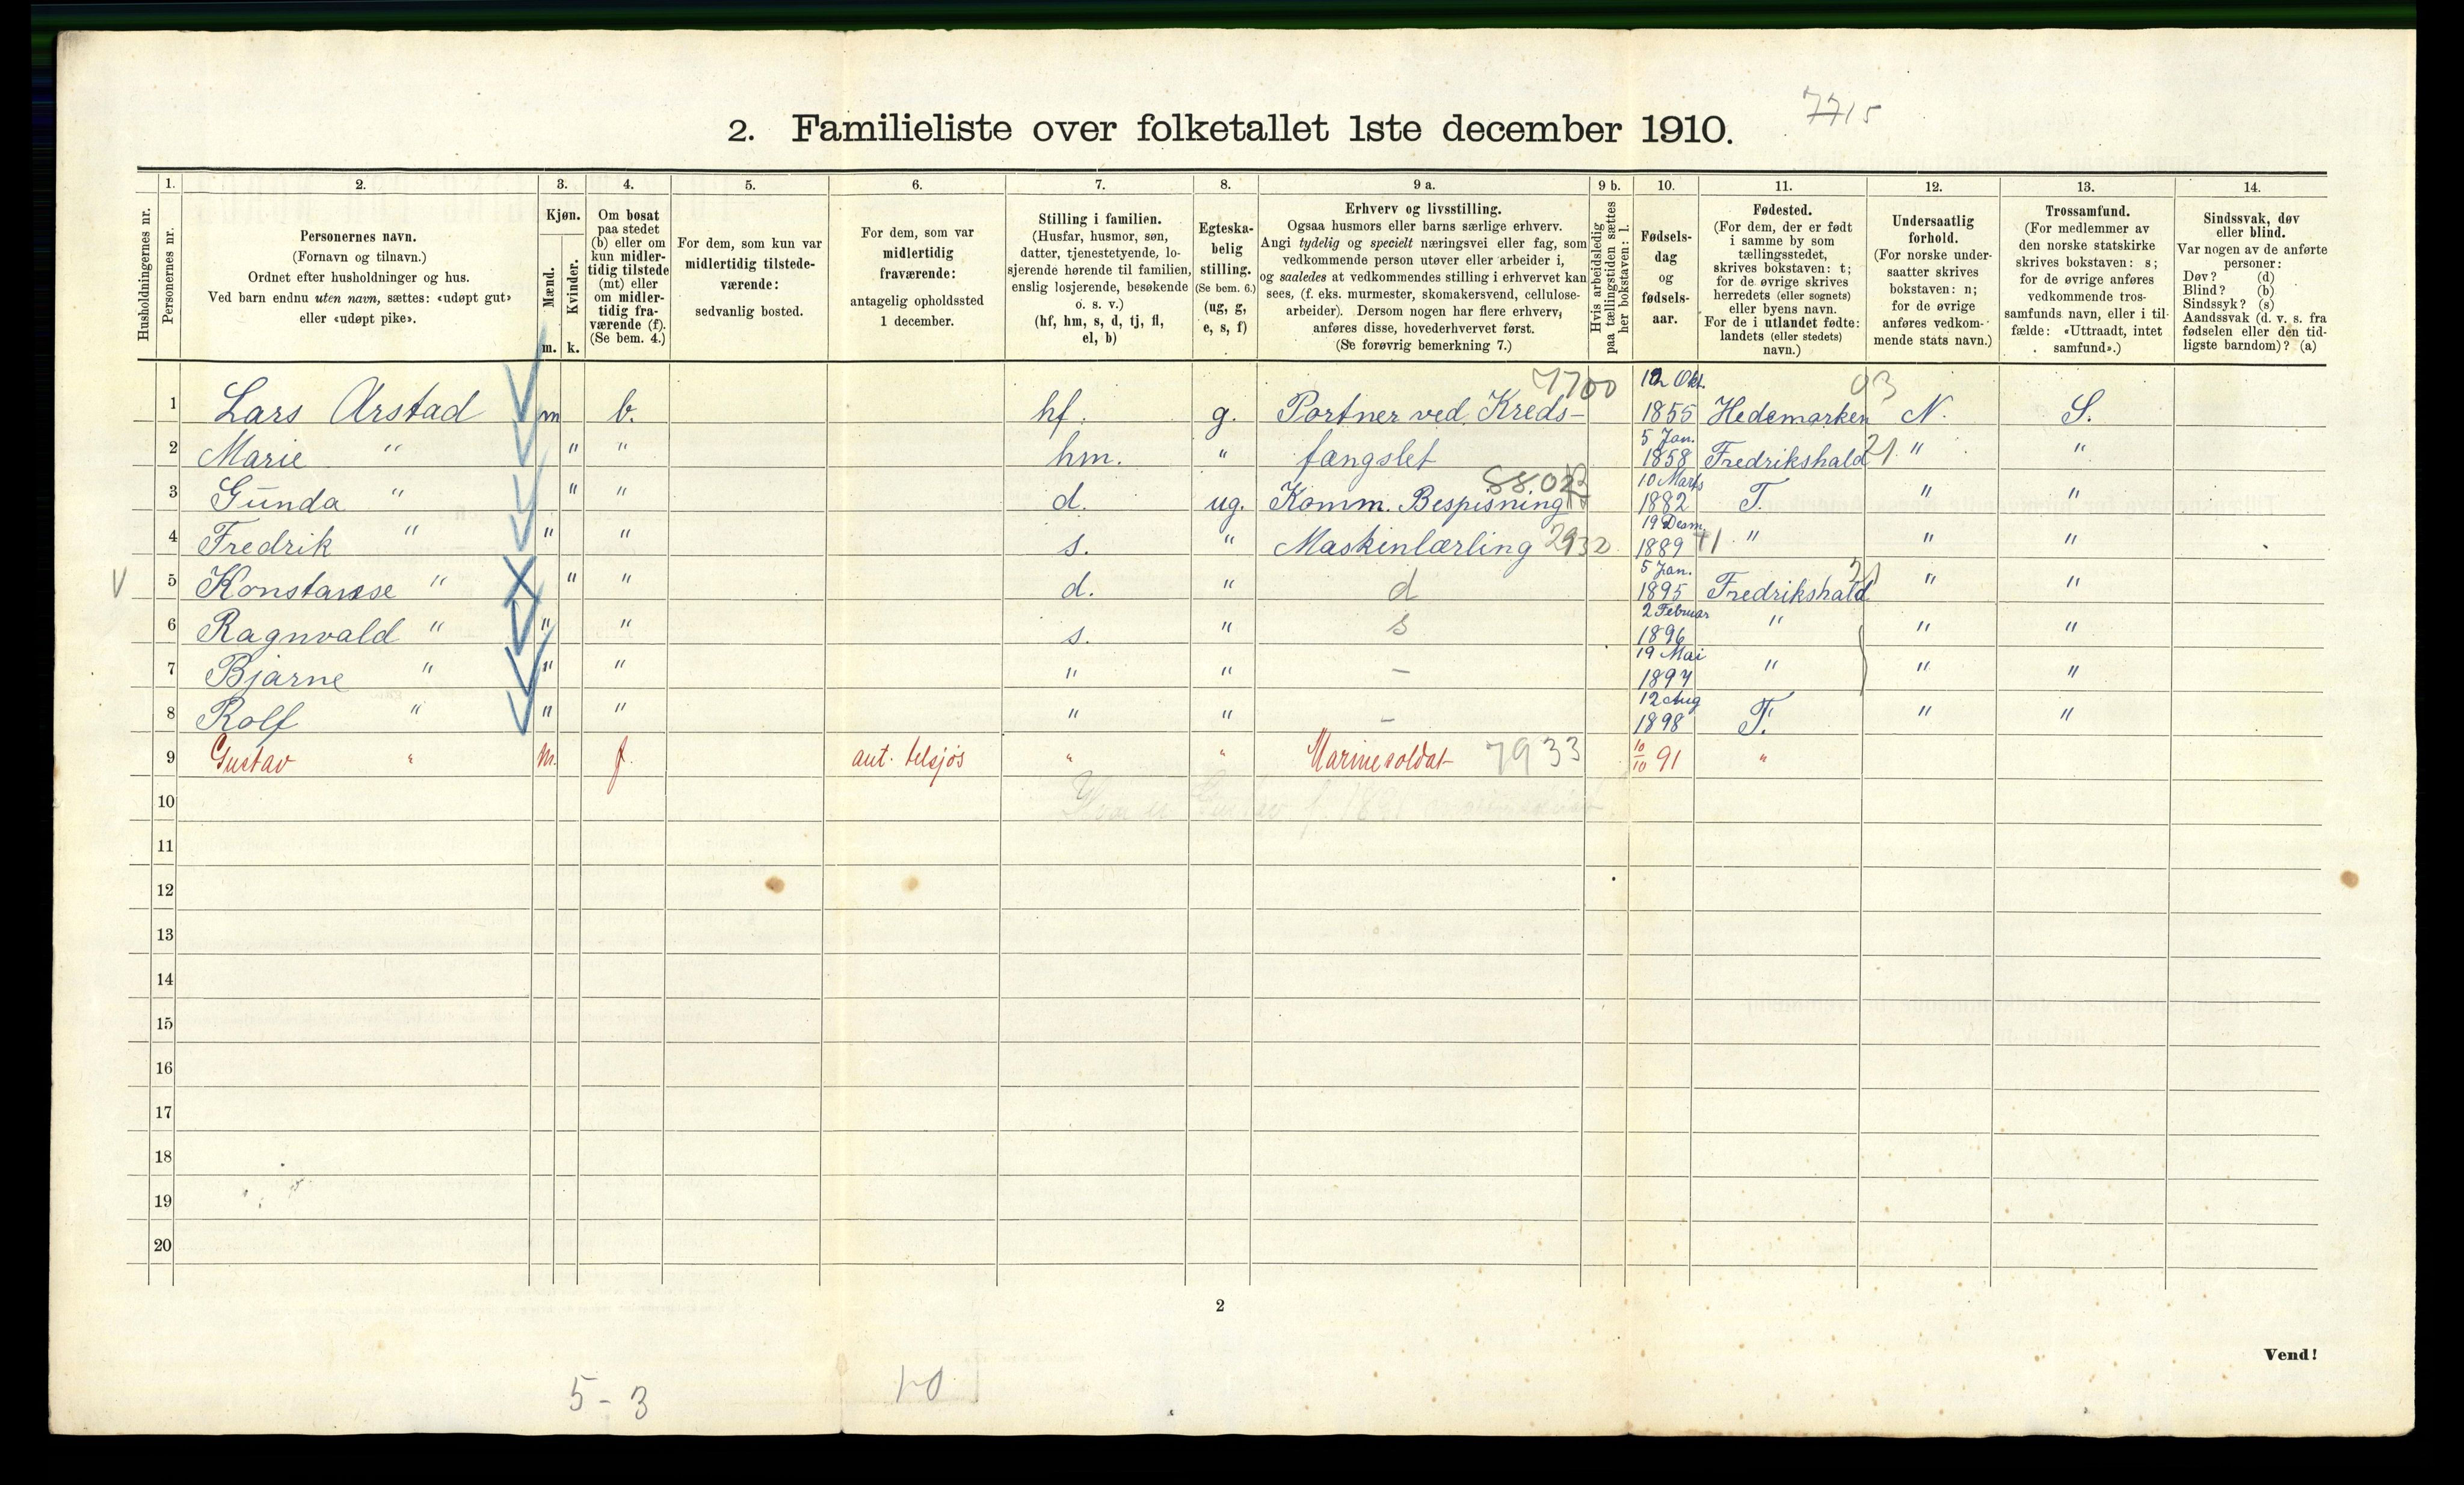 7715
2. Familieliste over folketallet 1ste december 1910.
Husholdningernes nr.
1.
Personernes nr.
2.
Personernes navn.
(Fornavn og tilnavn.)
Ordnet efter husholdninger og hus.
Ved barn endnu uten navn, sættes: «udøpt gut»
eller «udøpt pike».
3.
Kjøn.
Mænd.
Kvinder.
m. k.
4.
Om bosat
paa stedet
(b) eller om
kun midler-
tidig tilstede
(mt) eller
om midler-
tidig fra-
værende (f).
(Se bem. 4.)
5.
For dem, som kun var
midlertidig tilstede-
værende:
sedvanlig bosted.
6.
For dem, som var
midlertidig
fraværende:
antagelig opholdssted
1 december.
7.
Stilling i familien.
(Husfar, husmor, søn,
datter, tjenestetyende, lo-
sjerende hørende til familien,
enslig losjerende, besøkende
o. s. v.)
(hf, hm, s, d, tj, fl,
el, b)
8.
Egteska-
belig
stilling.
(Se bem. 6.)
(ug, g,
e, s, f)
9 a.
Erhverv og livsstilling.
Ogsaa husmors eller barns særlige erhverv.
Angi tydelig og specielt næringsvei eller fag, som
vedkommende person utøver eller arbeider i,
og saaledes at vedkommendes stilling i erhvervet kan
sees, (f. eks. murmester, skomakersvend, cellulose-
arbeider). Dersom nogen har flere erhverv,
anføres disse, hovederhvervet først.
(Se forøvrig bemerkning 7.)
9 b.
Hvis arbeidsledig
paa tællingstiden sættes
her bokstaven: l.
10.
Fødsels-
dag
og
fødsels-
aar.
11.
Fødested.
(For dem, der er født
i samme by som
tællingsstedet,
skrives bokstaven: t;
for de øvrige skrives
herredets (eller sognets)
eller byens navn.
For de i utlandet fødte:
landets (eller stedets)
navn.)
12.
Undersaatlig
forhold.
(For norske under-
saatter skrives
bokstaven: n;
for de øvrige
anføres vedkom-
mende stats navn.)
13.
Trossamfund.
(For medlemmer av
den norske statskirke
skrives bokstaven: s;
for de øvrige anføres
vedkommende tros-
samfunds navn, eller i til-
fælde: «Uttraadt, intet
samfund».)
14.
Sindssvak, døv
eller blind.
Var nogen av de anførte
personer:
Døv? (d)
Blind? (b)
Sindssyk? (s)
Aandssvak (d. v. s. fra
fødselen eller den tid-
ligste barndom)? (a)
1 Lars Arstad m b. hf. g. Portner ved Kreds- 7700 12 Okt. 1855 Hedemarken 03 N. S.
2 Marie " " " hm. " fængslet 5 Jan. 1858 Fredrikshald 21 " "
3 Gunda " " " d. ug. Komm. Bespisning 10 Marts 1882 T. " "
4 Fredrik " " " s. " Maskinlærling 2932 19 Desm. 1889 " " "
V 5 Konstanse " " " d. " d 5 Jan. 1895 Fredrikshald 21 " "
6 Ragnvald " " " s. " s 2 Februar 1896 " " "
7 Bjarne " " " " " – 19 Mai 1897 " " "
8 Rolf " " " " " – 12 Aug 1898 T. " "
9 Gustav " m. f. ant. telsjøs " " Marinesoldat 7933 10/10 91 "
10
Hvor er Gustav f. 1891
11
12
13
14
15
16
17
18
19
20
2
Vend!
5 - 3